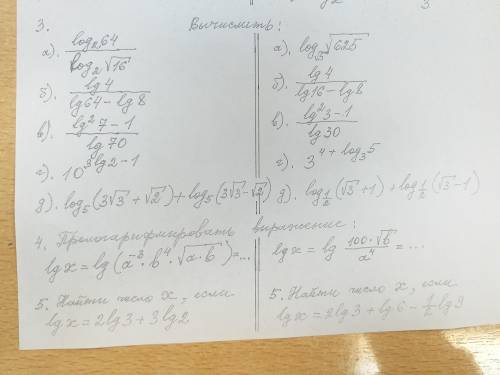 3. Вычислить:
а). log₂64 / log₂√16
б). lg4 / (lg64 − lg8)
в). (lg²7 − 1) / lg70
г). 10^(3lg2−1)
д). log₅(3√3 + √2) + log₅(3√3 − √2)
а). log_√5 √625
б). lg4 / (lg16 − lg8)
в). (lg²3 − 1) / lg30
г). 3^(4 + log₃5)
д). log_½(√3 + 1) + log_½(√3 − 1)
4. Прологарифмировать выражение:
lgx = lg(a⁻³ · b⁴ · √(a·b)) = ...
lgx = lg (100·√b / a⁴) = ...
5. Найти число x, если
lgx = 2lg3 + 3lg2
5. Найти число x, если
lgx = 2lg3 + lg6 − ½lg9